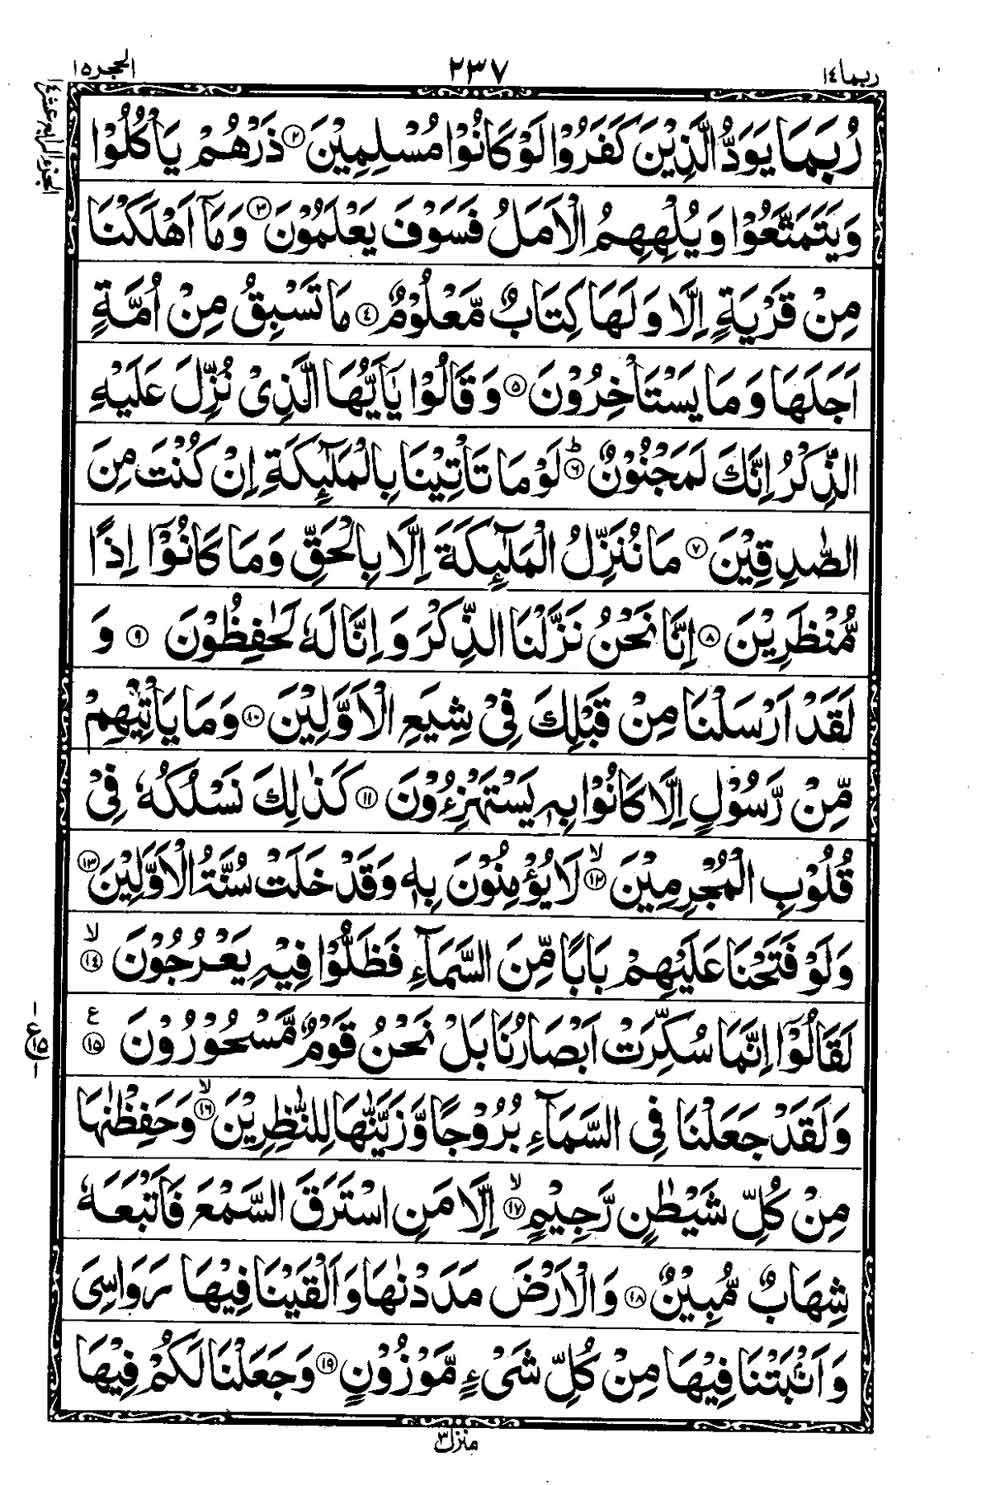 ربما ١٤
٢٣٧
الحجر ١٥
الجزء الرابع عشر ١٤
رُبَمَا يَوَدُّ الَّذِيْنَ كَفَرُوْا لَوْ كَانُوْا مُسْلِمِيْنَ ٢ ذَرْهُمْ يَاْكُلُوْا
وَيَتَمَتَّعُوْا وَيُلْهِهِمُ الْاَمَلُ فَسَوْفَ يَعْلَمُوْنَ ٣ وَمَآ اَهْلَكْنَا
مِنْ قَرْيَةٍ اِلَّا وَلَهَا كِتَابٌ مَّعْلُوْمٌ ٤ مَا تَسْبِقُ مِنْ اُمَّةٍ
اَجَلَهَا وَمَا يَسْتَاْخِرُوْنَ ٥ وَقَالُوْا يٰٓاَيُّهَا الَّذِيْ نُزِّلَ عَلَيْهِ
الذِّكْرُ اِنَّكَ لَمَجْنُوْنٌ ٦ ط لَوْ مَا تَاْتِيْنَا بِالْمَلٰٓئِكَةِ اِنْ كُنْتَ مِنَ
الصّٰدِقِيْنَ ٧ مَا نُنَزِّلُ الْمَلٰٓئِكَةَ اِلَّا بِالْحَقِّ وَمَا كَانُوْٓا اِذًا
مُّنْظَرِيْنَ ٨ اِنَّا نَحْنُ نَزَّلْنَا الذِّكْرَ وَاِنَّا لَهٗ لَحٰفِظُوْنَ ٩ وَ
لَقَدْ اَرْسَلْنَا مِنْ قَبْلِكَ فِيْ شِيَعِ الْاَوَّلِيْنَ ١٠ وَمَا يَاْتِيْهِمْ
مِّنْ رَّسُوْلٍ اِلَّا كَانُوْا بِهٖ يَسْتَهْزِءُوْنَ ١١ كَذٰلِكَ نَسْلُكُهٗ فِيْ
قُلُوْبِ الْمُجْرِمِيْنَ ١٢ لا لَا يُؤْمِنُوْنَ بِهٖ وَقَدْ خَلَتْ سُنَّةُ الْاَوَّلِيْنَ ١٣
وَلَوْ فَتَحْنَا عَلَيْهِمْ بَابًا مِّنَ السَّمَآءِ فَظَلُّوْا فِيْهِ يَعْرُجُوْنَ ١٤ لا
لَقَالُوْٓا اِنَّمَا سُكِّرَتْ اَبْصَارُنَا بَلْ نَحْنُ قَوْمٌ مَّسْحُوْرُوْنَ ١٥ ع
ع ١٥
وَلَقَدْ جَعَلْنَا فِي السَّمَآءِ بُرُوْجًا وَّزَيَّنّٰهَا لِلنّٰظِرِيْنَ ١٦ لا وَحَفِظْنٰهَا
مِنْ كُلِّ شَيْطٰنٍ رَّجِيْمٍ ١٧ لا اِلَّا مَنِ اسْتَرَقَ السَّمْعَ فَاَتْبَعَهٗ
شِهَابٌ مُّبِيْنٌ ١٨ وَالْاَرْضَ مَدَدْنٰهَا وَاَلْقَيْنَا فِيْهَا رَوَاسِيَ
وَاَنْبَتْنَا فِيْهَا مِنْ كُلِّ شَيْءٍ مَّوْزُوْنٍ ١٩ وَجَعَلْنَا لَكُمْ فِيْهَا
منزل ٣